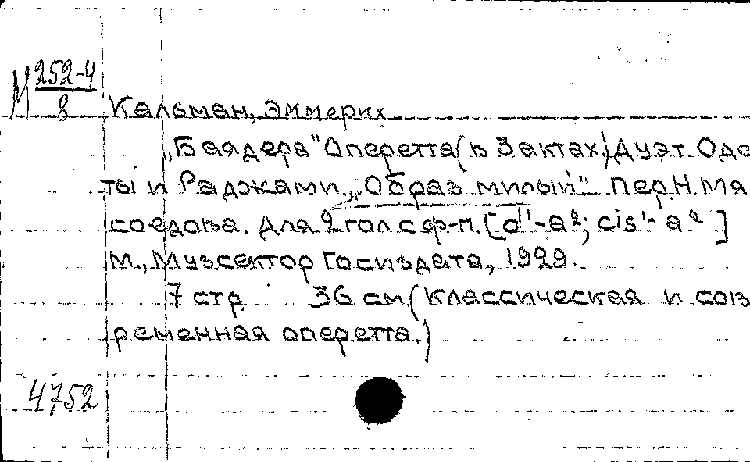 М 252-4
8
Кальман, Эммерих
„Баядера" Оперетта (в 3 актах) Дуэт Оде
ты и Раджами „Образ милый" Пер. Н. Мя
соедова. Для 2 гол с ф-п. [d'-a²; cis'-a²]
М., Музсектор Госиздата, 1929.
7 стр 36 см (Классическая и сов
ременная оперетта.)
4752